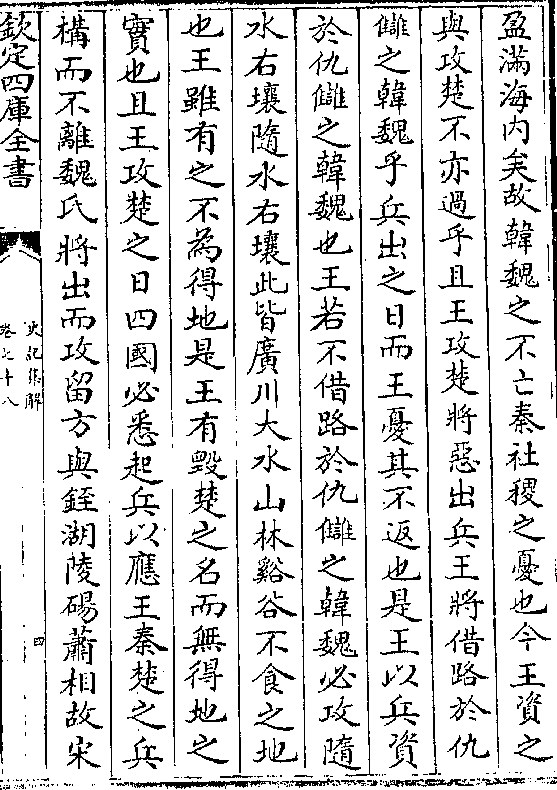 盈滿海内矣故韓魏之不亡秦社稷之憂也今王資之
與攻楚不亦過乎且王攻楚將惡出兵王將借路於仇
讎之韓魏乎兵出之日而王憂其不返也是王以兵資
於仇讎之韓魏也王若不借路於仇讎之韓魏必攻隨
水右壤隨水右壤此皆廣川大水山林谿谷不食之地
也王雖有之不為得地是王有毀楚之名而無得地之
實也且王攻楚之日四國必悉起兵以應王秦楚之兵
構而不離魏氏將出而攻留方與銍湖陵碭蕭相故宋
欽定四庫全書
史記集解
卷七十八
四